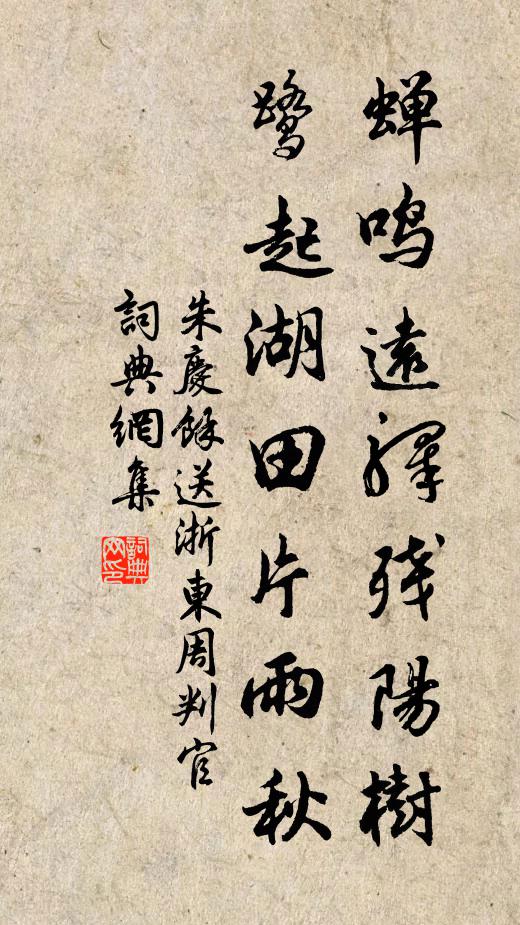 蝉鸣遠驛残陽樹
鷺起湖田片雨秋
朱慶餘送浙東周判官
詞典網集
詞典网印